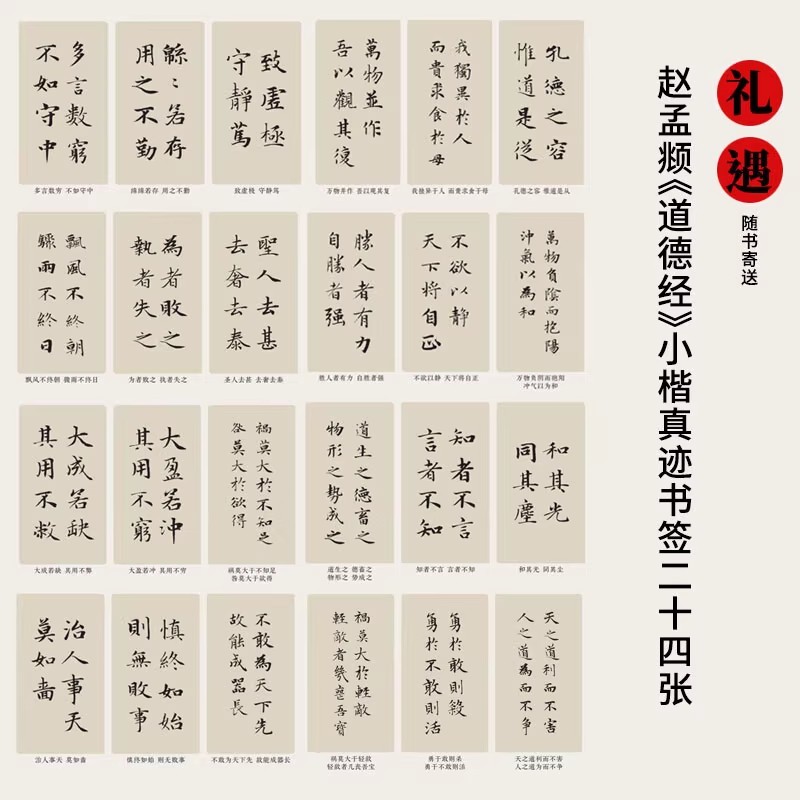 礼遇
随书寄送
赵孟頫《道德经》小楷真迹书签二十四张
多言數窮
不如守中
多言数穷 不如守中
緜〻若存
用之不勤
绵绵若存 用之不勤
致虛極
守靜篤
致虚极 守静笃
萬物並作
吾以觀其復
万物并作 吾以观其复
我獨異於人
而貴求食於母
我独异于人 而贵求食于母
孔德之容
惟道是從
孔德之容 惟道是从
飄風不終朝
驟雨不終日
飘风不终朝 骤雨不终日
為者敗之
執者失之
为者败之 执者失之
聖人去甚
去奢去泰
圣人去甚 去奢去泰
勝人者有力
自勝者强
胜人者有力 自胜者强
不欲以靜
天下将自正
不欲以静 天下将自正
萬物負陰而抱陽
沖氣以為和
万物负阴而抱阳
冲气以为和
大成若缺
其用不敝
大成若缺 其用不弊
大盈若沖
其用不窮
大盈若冲 其用不穷
禍莫大於不知足
咎莫大於欲得
祸莫大于不知足
咎莫大于欲得
道生之德畜之
物形之勢成之
道生之 德畜之
物形之 势成之
知者不言
言者不知
知者不言 言者不知
和其光
同其塵
和其光 同其尘
治人事天
莫如嗇
治人事天 莫如啬
慎終如始
則無敗事
慎终如始 则无败事
不敢為天下先
故能成器長
不敢为天下先 故能成器长
禍莫大於輕敵
輕敵者幾喪吾寶
祸莫大于轻敌
轻敌者几丧吾宝
勇於敢則殺
勇於不敢則活
勇于敢则杀
勇于不敢则活
天之道利而不害
人之道為而不争
天之道利而不害
人之道为而不争